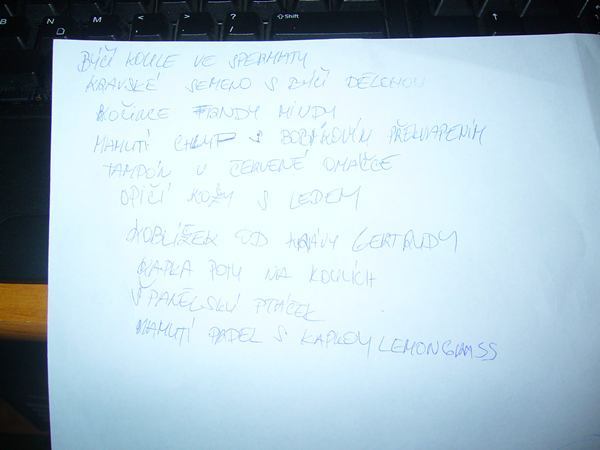 B N M < > ? / ⇧Shift
BÝČÍ KOULE VE SPERMATY
KRAVSKÉ SEMENO S BÝČÍ
KOČIČE FANDY MINDY
MAMUTÍ CHLUP S PŘEKVAPENÍM
TAMPÓN V ČERVENÉ OMÁČCE
OPIČÍ KOZY S LEDEM
KOBLÍŽEK OD KRÁVY GERTRUDY
KAPKA POTU NA KOULÍCH
ŠPANĚLSKÝ PTÁČEK
MAMUTÍ PADEL S KAPKOU LEMONGRASS